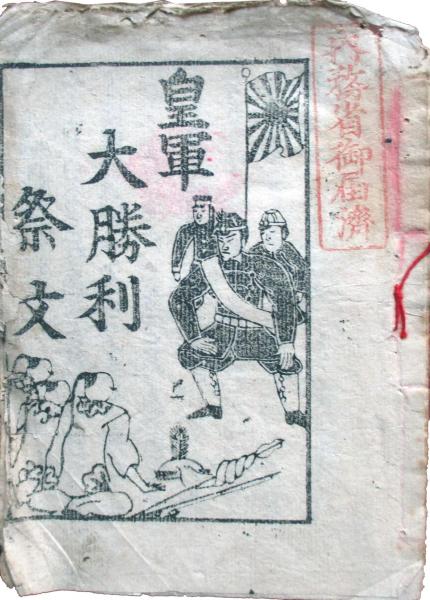 内務省御届濟
皇軍
大勝利
祭文